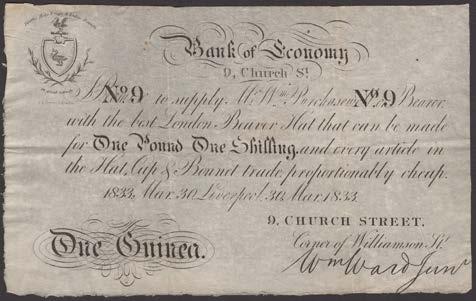 Bank of Economy
9, Church St.
I Prom No. 9 to supply Mr. Wm. Purchaser No. 9 Bearer
with the best London Beaver Hat that can be made
for One Pound One Shilling, and every article in
the Hat, Cap & Bonnet trade proportionably cheap.
1833, Mar. 30 Liverpool, 30 Mar. 1833
9, CHURCH STREET.
Corner of Williamson St.
One Guinea.
Wm Ward Junr